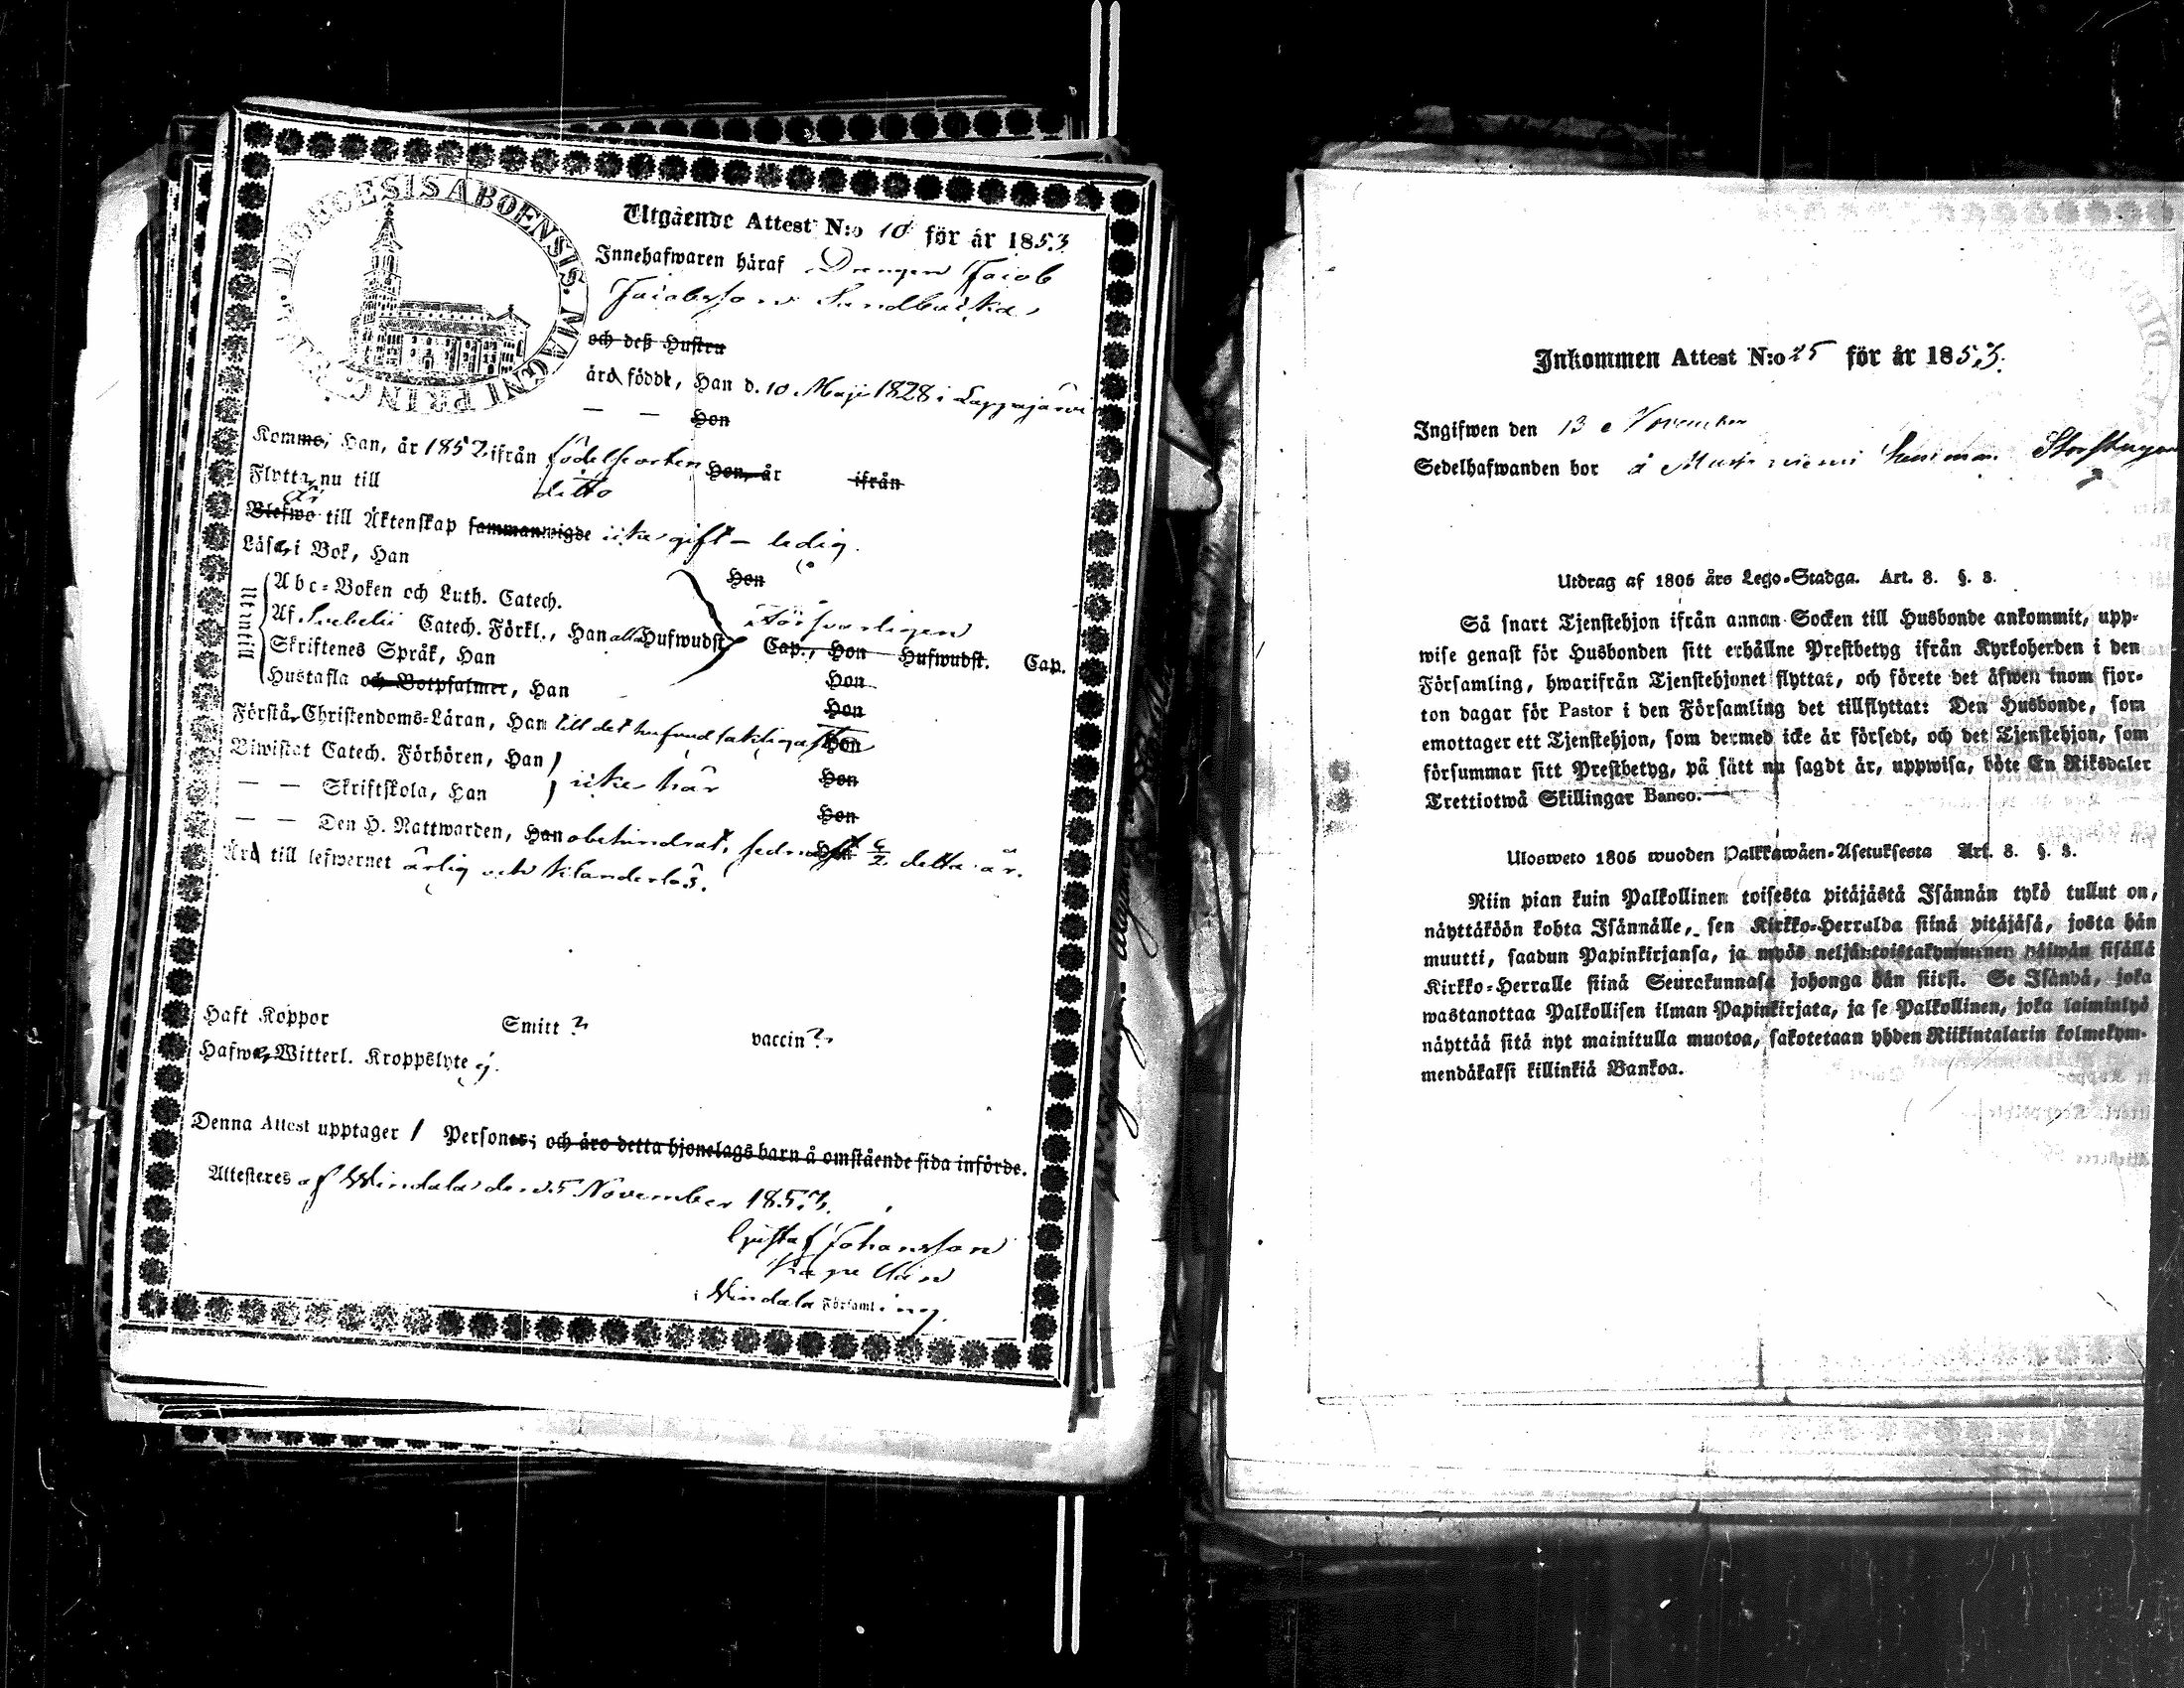 DIOECESIS ABOENSIS. MAGNI PRINC.
Utgående Attest N:o 10 för år 1853
Innehafwaren häraf Drengen Jacob
Jacobsson Sandbacka
och deß Hustru
ärd föddt, Han d. 10 Maji 1828 i Lappajärvi
— — Hon
Komme, Han, år 1852 ifrån födelseorten Hon, år ifrån
Flytta nu till ditto
är
Blefwo till Äktenskap sammanwigde icke gift – ledig.
Läsa i Bok, Han Hon
Utantill
Abc-Boken och Luth. Catech. Försvarligen
Af Svebelii Catech. Förkl., Han alla Hufwudst. Cap., Hon Hufwudst. Cap.
Skriftenes Språk, Han Hon
Hustafla och Botpsalmer, Han Hon
Förstå Christendoms-Läran, Han till det hufvudsakligaste Hon
Biwistat Catech. Förhören, Han Hon
icke här
— — Skriftskola, Han Hon
— — Den H. Nattwarden, Han obehindrat, sednast 6/2 detta år.
Ärd till lefwernet ärlig och klanderlös.
Haft Koppor Smitt ? vaccin ?
Hafwa Witterl. Kroppslyte ej.
Denna Attest upptager 1 Personer; och äro detta hjonelags barn å omstående sida införde.
Attesteres af Windala den 5 November 1853.
Gustaf Johansson
Kapellan
i Windala Församling.
Inkommen Attest N:o 25 för år 1853.
Ingifwen den 13 November
Sedelhafwanden bor å
Utdrag af 1805 års Lego-Stadga. Art. 8. §. 8.
Så snart Tjenstehjon ifrån annan Socken till Husbonde ankommit, upp-
wise genast för Husbonden sitt erhållne Prestbetyg ifrån Kyrkoherden i den
Församling, hwarifrån Tjenstehjonet flyttat, och förete det äfwen inom fjor-
ton dagar för Pastor i den Församling det tillflyttat: Den Husbonde, som
emottager ett Tjenstehjon, som dermed icke är försedt, och det Tjenstehjon, som
försummar sitt Prestbetyg, på sätt nu sagdt är, uppwisa, böte En Riksdaler
Trettiotwå Skillingar Banco.—
Ulosweto 1805 wuoden Palkkawäen-Asetuksesta Art. 8. §. 8.
Niin pian kuin Palkollinen toisesta pitäjästä Isännän tykö tullut on,
näyttäköön kohta Isännälle, sen Kirkko-Herralda siinä pitäjäsä, josta hän
muutti, saadun Papinkirjansa, ja myös neljäntoistakymmenen päiwän sisällä
Kirkko-Herralle siinä Seurakunnasa johonga hän siirsi. Se Isändä, joka
wastanottaa Palkollisen ilman Papinkirjata, ja se Palkollinen, joka laiminlyö
näyttää sitä nyt mainitulla muotoa, sakotetaan yhden Riikintalarin kolmekym-
mendäkaksi killinkiä Bankoa.